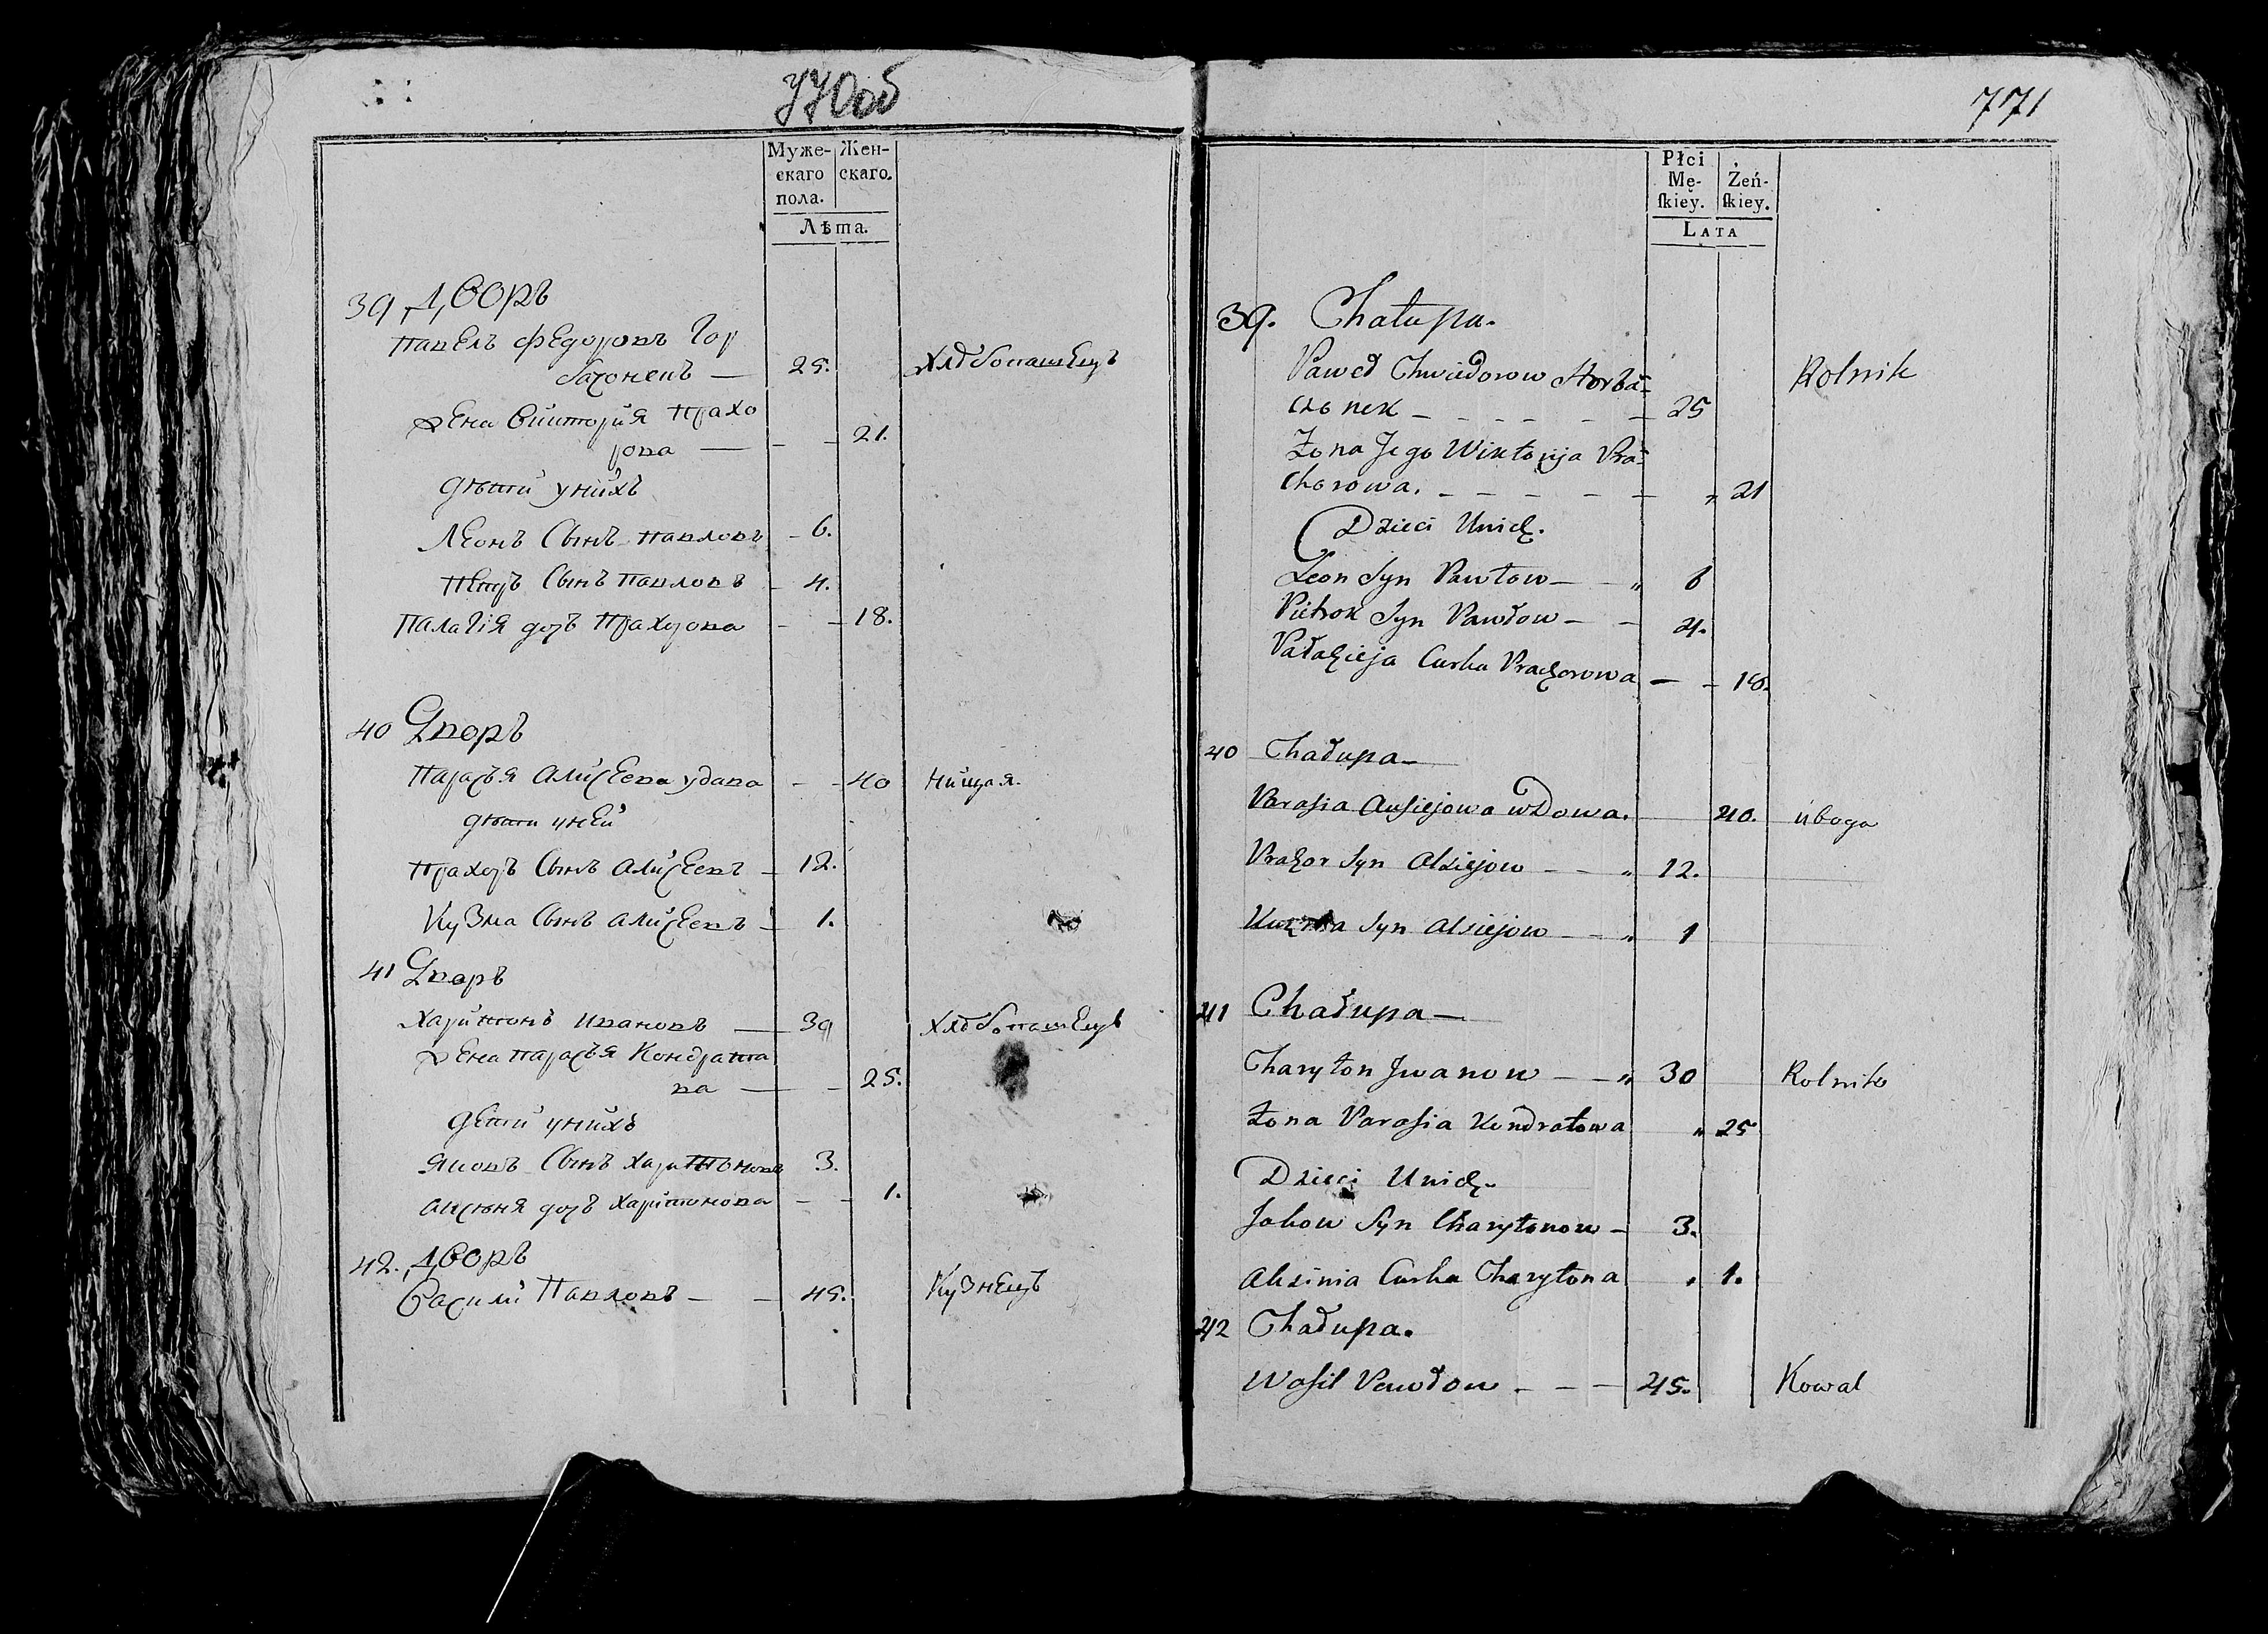 770об
Муже-
скаго
пола.
Жен-
скаго.
Лѣта.
39 Дворъ
Павелъ Федоровъ Гор
бачонекъ — 25. Хлѣбопашецъ
Жена Викторія Прахо
рова — 21.
дѣти у нихъ
Леонъ Сынъ Павловъ 6.
Петръ Сынъ Павловъ 4.
Палагія дочь Прахорова 18.
40 Дворъ
Парасья Алисеева удава 40 нищая.
дѣти у ней
Прахоръ Сынъ Алисеевъ 12.
Кузма Сынъ Алисеевъ 1.
41 Дворъ
Харитонъ Ивановъ — 39 Хлѣбопашецъ
Жена Парасья Кондрато
ва — 25.
дети у нихъ
Яковъ Сынъ Харитоновъ 3.
Аксюня дочь Харитонова 1.
42. Дворъ
Васили Павловъ — 45. Кузнецъ
771
Płci
Mę-
skiey.
Żeń-
skiey.
LATA
39. Chałupa.
Paweł Chwiedorow Horba-
czonek 25 Rolnik
Żona Jego Wiktoryja Pra-
chorowa. 21
Dzieci Unich.
Leon Syn Pawłow 6
Pietrok Syn Pawłow 4.
Pałahieja Curka Prachorowa 18.
40 Chałupa
Parasia Ausiejowa wDowa. 40. uboga
Prahor Syn Alsiejow 12.
Kuzma Syn Alsiejow 1
41 Chałupa
Charyton Jwanow 30 Rolnik
Żona Parasia Kondratowa 25
Dzieci Unich.
Jakow Syn Charytonow 3.
Alisinia Curka Charytona 1.
42 Chałupa.
Wasil Pawłow 45. Kowal